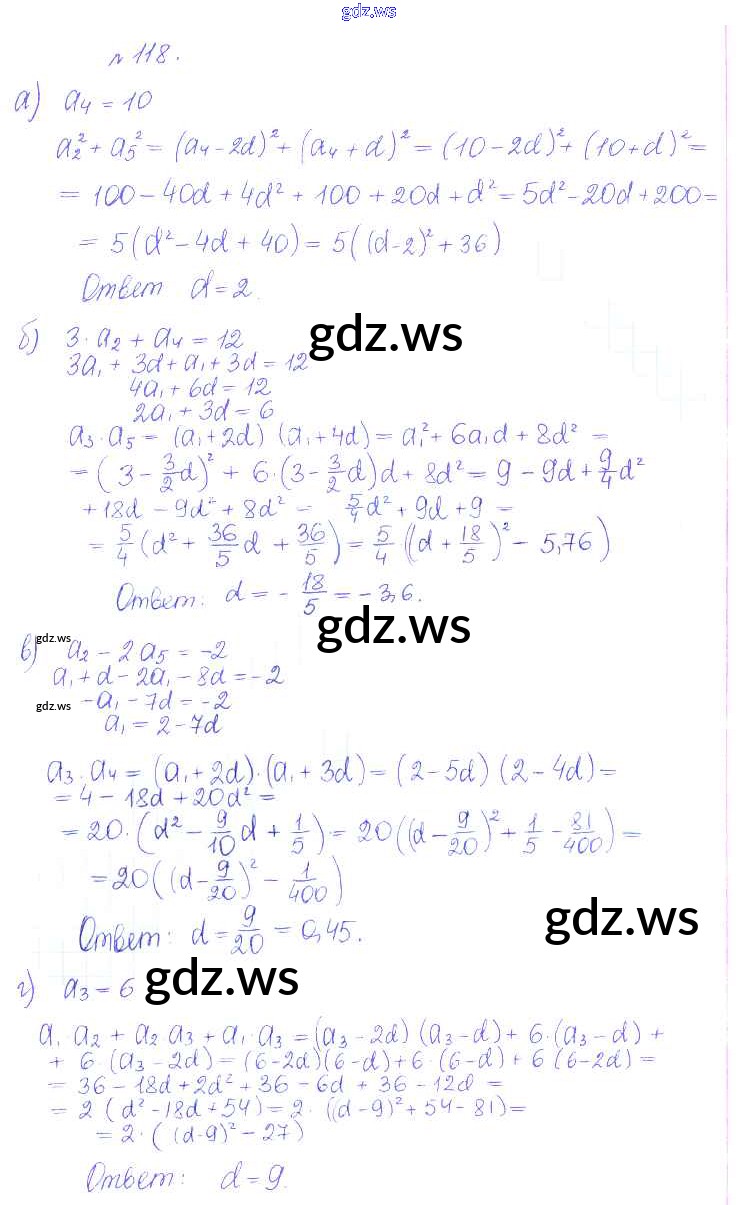 gdz.ws
№ 118.
а) a₄ = 10
a₂² + a₅² = (a₄ - 2d)² + (a₄ + d)² = (10 - 2d)² + (10 + d)² =
= 100 - 40d + 4d² + 100 + 20d + d² = 5d² - 20d + 200 =
= 5(d² - 4d + 40) = 5((d-2)² + 36)
Ответ d = 2.
б) 3·a₂ + a₄ = 12
gdz.ws
3a₁ + 3d + a₁ + 3d = 12
4a₁ + 6d = 12
2a₁ + 3d = 6
a₃·a₅ = (a₁ + 2d)(a₁ + 4d) = a₁² + 6a₁d + 8d² =
= (3 - 3/2 d)² + 6·(3 - 3/2 d)d + 8d² = 9 - 9d + 9/4 d²
+ 18d - 9d² + 8d² = 5/4 d² + 9d + 9 =
= 5/4 (d² + 36/5 d + 36/5) = 5/4 ((d + 18/5)² - 5,76)
Ответ: d = - 18/5 = -3,6.
gdz.ws
gdz.ws
в) a₂ - 2a₅ = -2
a₁ + d - 2a₁ - 8d = -2
gdz.ws
-a₁ - 7d = -2
a₁ = 2 - 7d
a₃·a₄ = (a₁ + 2d)·(a₁ + 3d) = (2 - 5d)(2 - 4d) =
= 4 - 18d + 20d² =
= 20·(d² - 9/10 d + 1/5) = 20((d - 9/20)² + 1/5 - 81/400) =
= 20((d - 9/20)² - 1/400)
Ответ: d = 9/20 = 0,45.
gdz.ws
г) a₃ = 6
gdz.ws
a₁·a₂ + a₂·a₃ + a₁·a₃ = (a₃ - 2d)(a₃ - d) + 6·(a₃ - d) +
+ 6·(a₃ - 2d) = (6 - 2d)(6 - d) + 6·(6 - d) + 6(6 - 2d) =
= 36 - 18d + 2d² + 36 - 6d + 36 - 12d =
= 2(d² - 18d + 54) = 2·((d - 9)² + 54 - 81) =
= 2·((d-9)² - 27)
Ответ: d = 9.